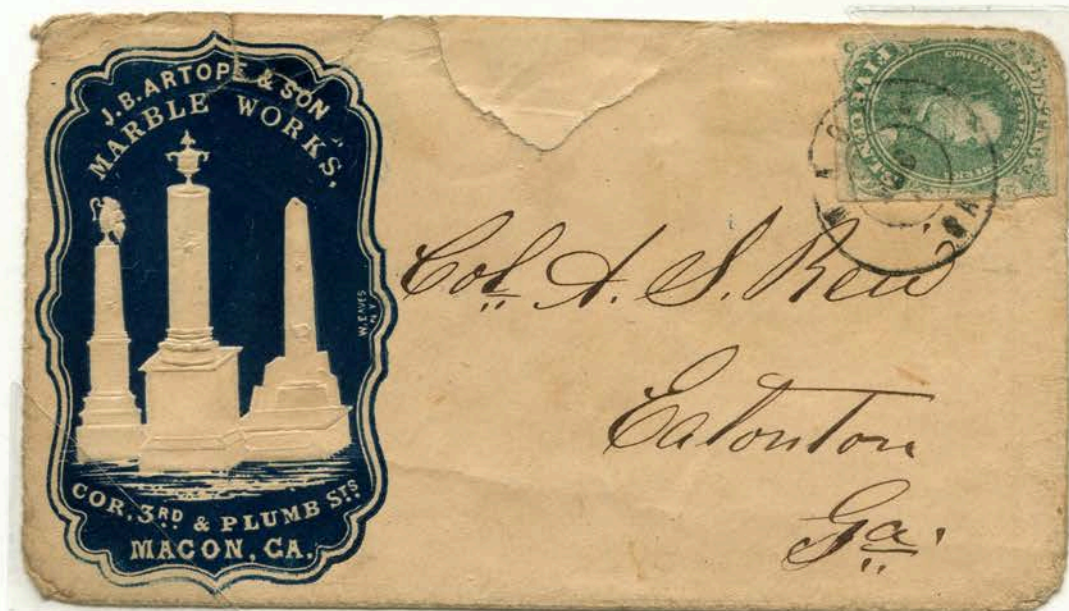 J. B. ARTOPE & SON
MARBLE WORKS,
W. EAVES
N.Y.
COR. 3RD & PLUMB STS
MACON, GA.
CONFEDERATE STATES
POSTAGE
MACON
GA
Col. A. S. Reid
Eatonton
Ga.